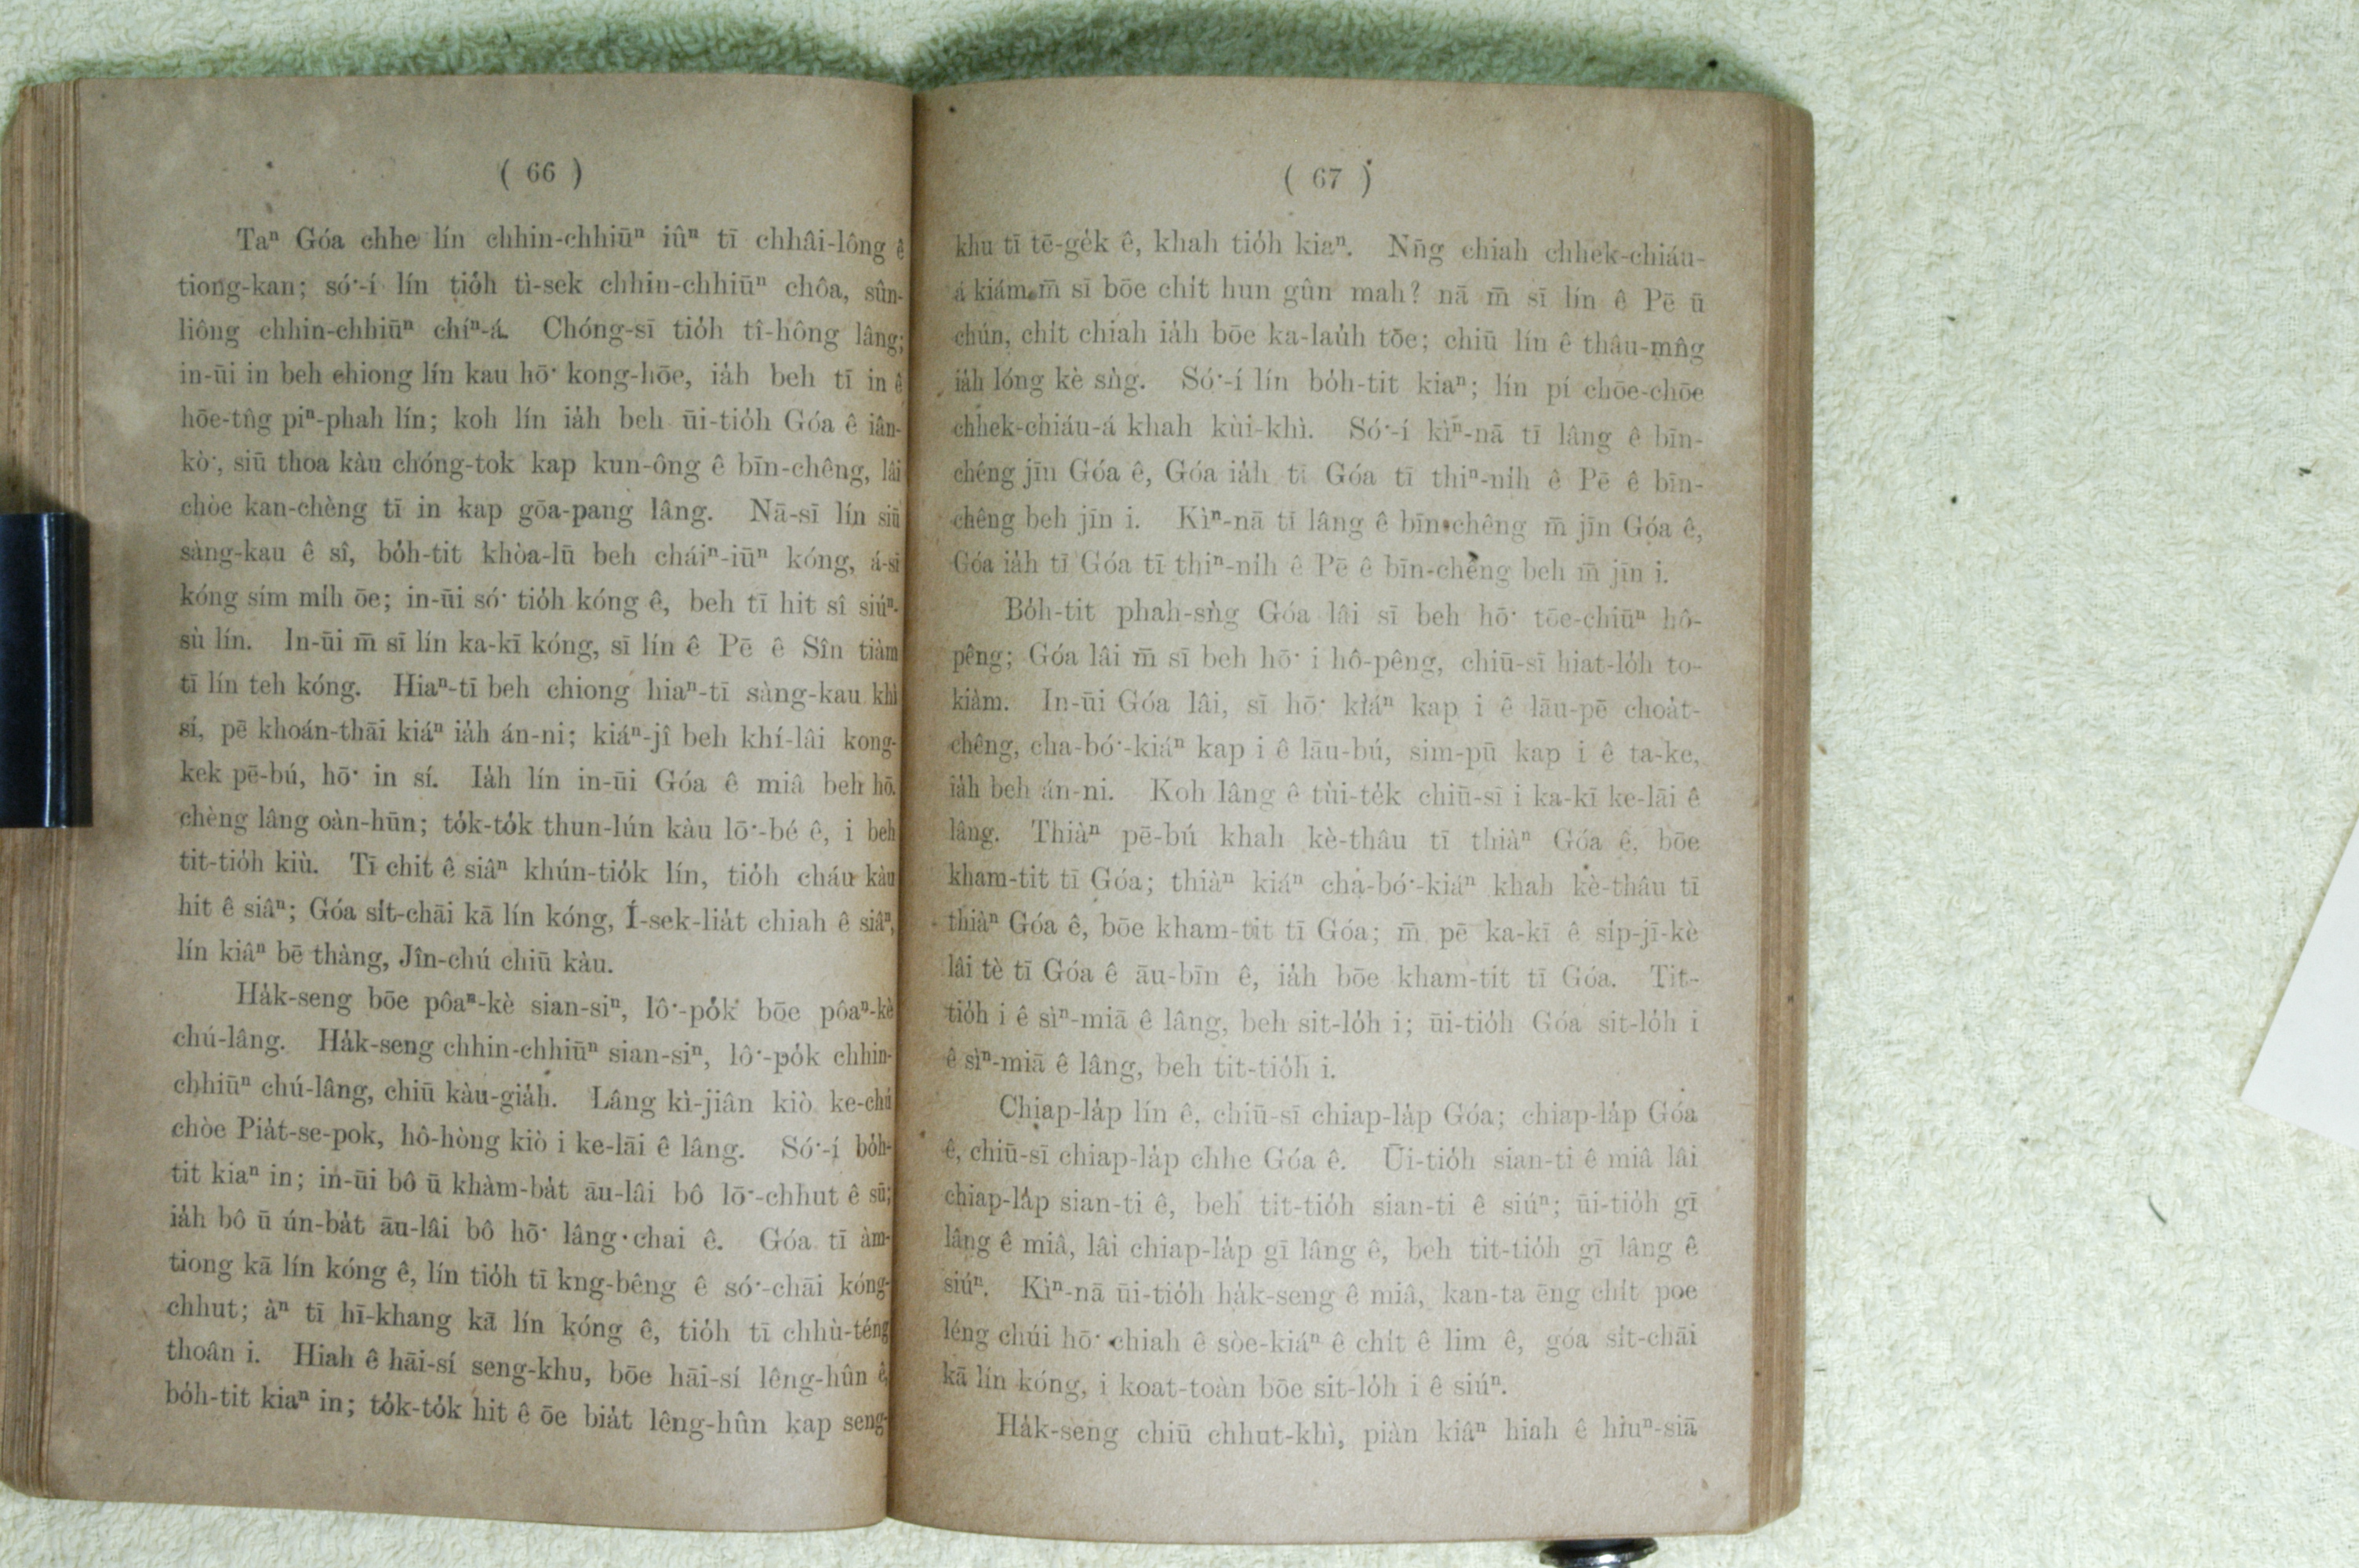 ( 66 )
Taⁿ Góa chhe lín chhin-chhiūⁿ iûⁿ tī chhâi-lông ê
tiong-kan; só͘-í lín tio̍h tì-sek chhin-chhiūⁿ chôa, sûn-
liông chhin-chhiūⁿ chíⁿ-á. Chóng-sī tio̍h tî-hông lâng;
in-ūi in beh chiong lín kau hō͘ kong-hōe, ia̍h beh tī in ê
hōe-tn̂g piⁿ-phah lín; koh lín ia̍h beh ūi-tio̍h Góa ê iân-
kò͘, siū thoa kàu chóng-tok kap kun-ông ê bīn-chêng, lâi
chòe kan-chèng tī in kap gōa-pang lâng. Nā-sī lín siū
sàng-kau ê sî, bo̍h-tit khòa-lū beh cháiⁿ-iūⁿ kóng, á-sī
kóng sím mi̍h ōe; in-ūi só͘ tio̍h kóng ê, beh tī hit sî siúⁿ-
sù lín. In-ūi m̄ sī lín ka-kī kóng, sī lín ê Pē ê Sîn tiàm
tī lín teh kóng. Hiaⁿ-tī beh chiong hiaⁿ-tī sàng-kau khì
sí, pē khoán-thāi kiáⁿ ia̍h án-ni; kiáⁿ-jî beh khí-lâi kong-
kek pē-bú, hō͘ in sí. Ia̍h lín in-ūi Góa ê miâ beh hō͘
chèng lâng oàn-hūn; to̍k-to̍k thun-lún kàu lō͘-bé ê, i beh
tit-tio̍h kiù. Tī chit ê siâⁿ khún-tio̍k lín, tio̍h cháu kàu
hit ê siâⁿ; Góa si̍t-chāi kā lín kóng, Í-sek-lia̍t chiah ê siâⁿ,
lín kiâⁿ bē thàng, Jîn-chú chiū kàu.
Ha̍k-seng bōe pôaⁿ-kè sian-siⁿ, lô͘-po̍k bōe pôaⁿ-kè
chú-lâng. Ha̍k-seng chhin-chhiūⁿ sian-siⁿ, lô͘-po̍k chhin-
chhiūⁿ chú-lâng, chiū kàu-gia̍h. Lâng kì-jiân kiò ke-chú
chòe Pia̍t-se-pok, hô-hòng kiò i ke-lāi ê lâng. Só͘-í bo̍h-
tit kiaⁿ in; in-ūi bô ū khàm-ba̍t āu-lâi bô lō͘-chhut ê sū;
ia̍h bô ū ún-ba̍t āu-lâi bô hō͘ lâng chai ê. Góa tī àm-
tiong kā lín kóng ê, lín tio̍h tī kng-bêng ê só͘-chāi kóng-
chhut; àⁿ tī hī-khang kā lín kóng ê, tio̍h tī chhù-téng
thoân i. Hiah ê hāi-sí seng-khu, bōe hāi-sí lêng-hûn ê,
bo̍h-tit kiaⁿ in; to̍k-to̍k hit ê ōe bia̍t lêng-hûn kap seng-
( 67 )
khu tī tē-ge̍k ê, khah tio̍h kiaⁿ. Nn̄g chiah chhek-chiáu-
á kiám m̄ sī bōe chi̍t hun gûn mah? nā m̄ sī lín ê Pē ū
chún, chi̍t chiah ia̍h bōe ka-lau̍h tōe; chiū lín ê thâu-mn̂g
ia̍h lóng kè sǹg. Só͘-í lín bo̍h-tit kiaⁿ; lín pí chōe-chōe
chhek-chiáu-á khah kùi-khì. Só͘-í kìⁿ-nā tī lâng ê bīn-
chêng jīn Góa ê, Góa ia̍h tī Góa tī thiⁿ-ni̍h ê Pē ê bīn-
chêng beh jīn i. Kìⁿ-nā tī lâng ê bīn-chêng m̄ jīn Góa ê,
Góa ia̍h tī Góa tī thiⁿ-ni̍h ê Pē ê bīn-chêng beh m̄ jīn i.
Bo̍h-tit phah-sǹg Góa lâi sī beh hō͘ tōe-chiūⁿ hô-
pêng; Góa lâi m̄ sī beh hō͘ i hô-pêng, chiū-sī hiat-lo̍h to-
kiàm. In-ūi Góa lâi, sī hō͘ kiáⁿ kap i ê lāu-pē choa̍t-
chêng, cha-bó͘-kiáⁿ kap i ê lāu-bú, sim-pū kap i ê ta-ke,
ia̍h beh án-ni. Koh lâng ê tùi-te̍k chiū-sī i ka-kī ke-lāi ê
lâng. Thiàⁿ pē-bú khah kè-thâu tī thiàⁿ Góa ê, bōe
kham-tit tī Góa; thiàⁿ kiáⁿ cha-bó͘-kiáⁿ khah kè-thâu tī
thiàⁿ Góa ê, bōe kham-tit tī Góa; m̄ pē ka-kī ê si̍p-jī-kè
lâi tè tī Góa ê āu-bīn ê, ia̍h bōe kham-tit tī Góa. Tit-
tio̍h i ê sìⁿ-miā ê lâng, beh sit-lo̍h i; ūi-tio̍h Góa sit-lo̍h i
ê sìⁿ-miā ê lâng, beh tit-tio̍h i.
Chiap-la̍p lín ê, chiū-sī chiap-la̍p Góa; chiap-la̍p Góa
ê, chiū-sī chiap-la̍p chhe Góa ê. Ūi-tio̍h sian-ti ê miâ lâi
chiap-la̍p sian-ti ê, beh tit-tio̍h sian-ti ê siúⁿ; ūi-tio̍h gī
lâng ê miâ, lâi chiap-la̍p gī lâng ê, beh tit-tio̍h gī lâng ê
siúⁿ. Kìⁿ-nā ūi-tio̍h ha̍k-seng ê miâ, kan-ta ēng chi̍t poe
léng chúi hō͘ chiah ê sòe-kiáⁿ ê chi̍t ê lim ê, góa si̍t-chāi
kā lín kóng, i koat-toàn bōe sit-lo̍h i ê siúⁿ.
Ha̍k-seng chiū chhut-khì, piàn kiâⁿ hiah ê hiuⁿ-siā